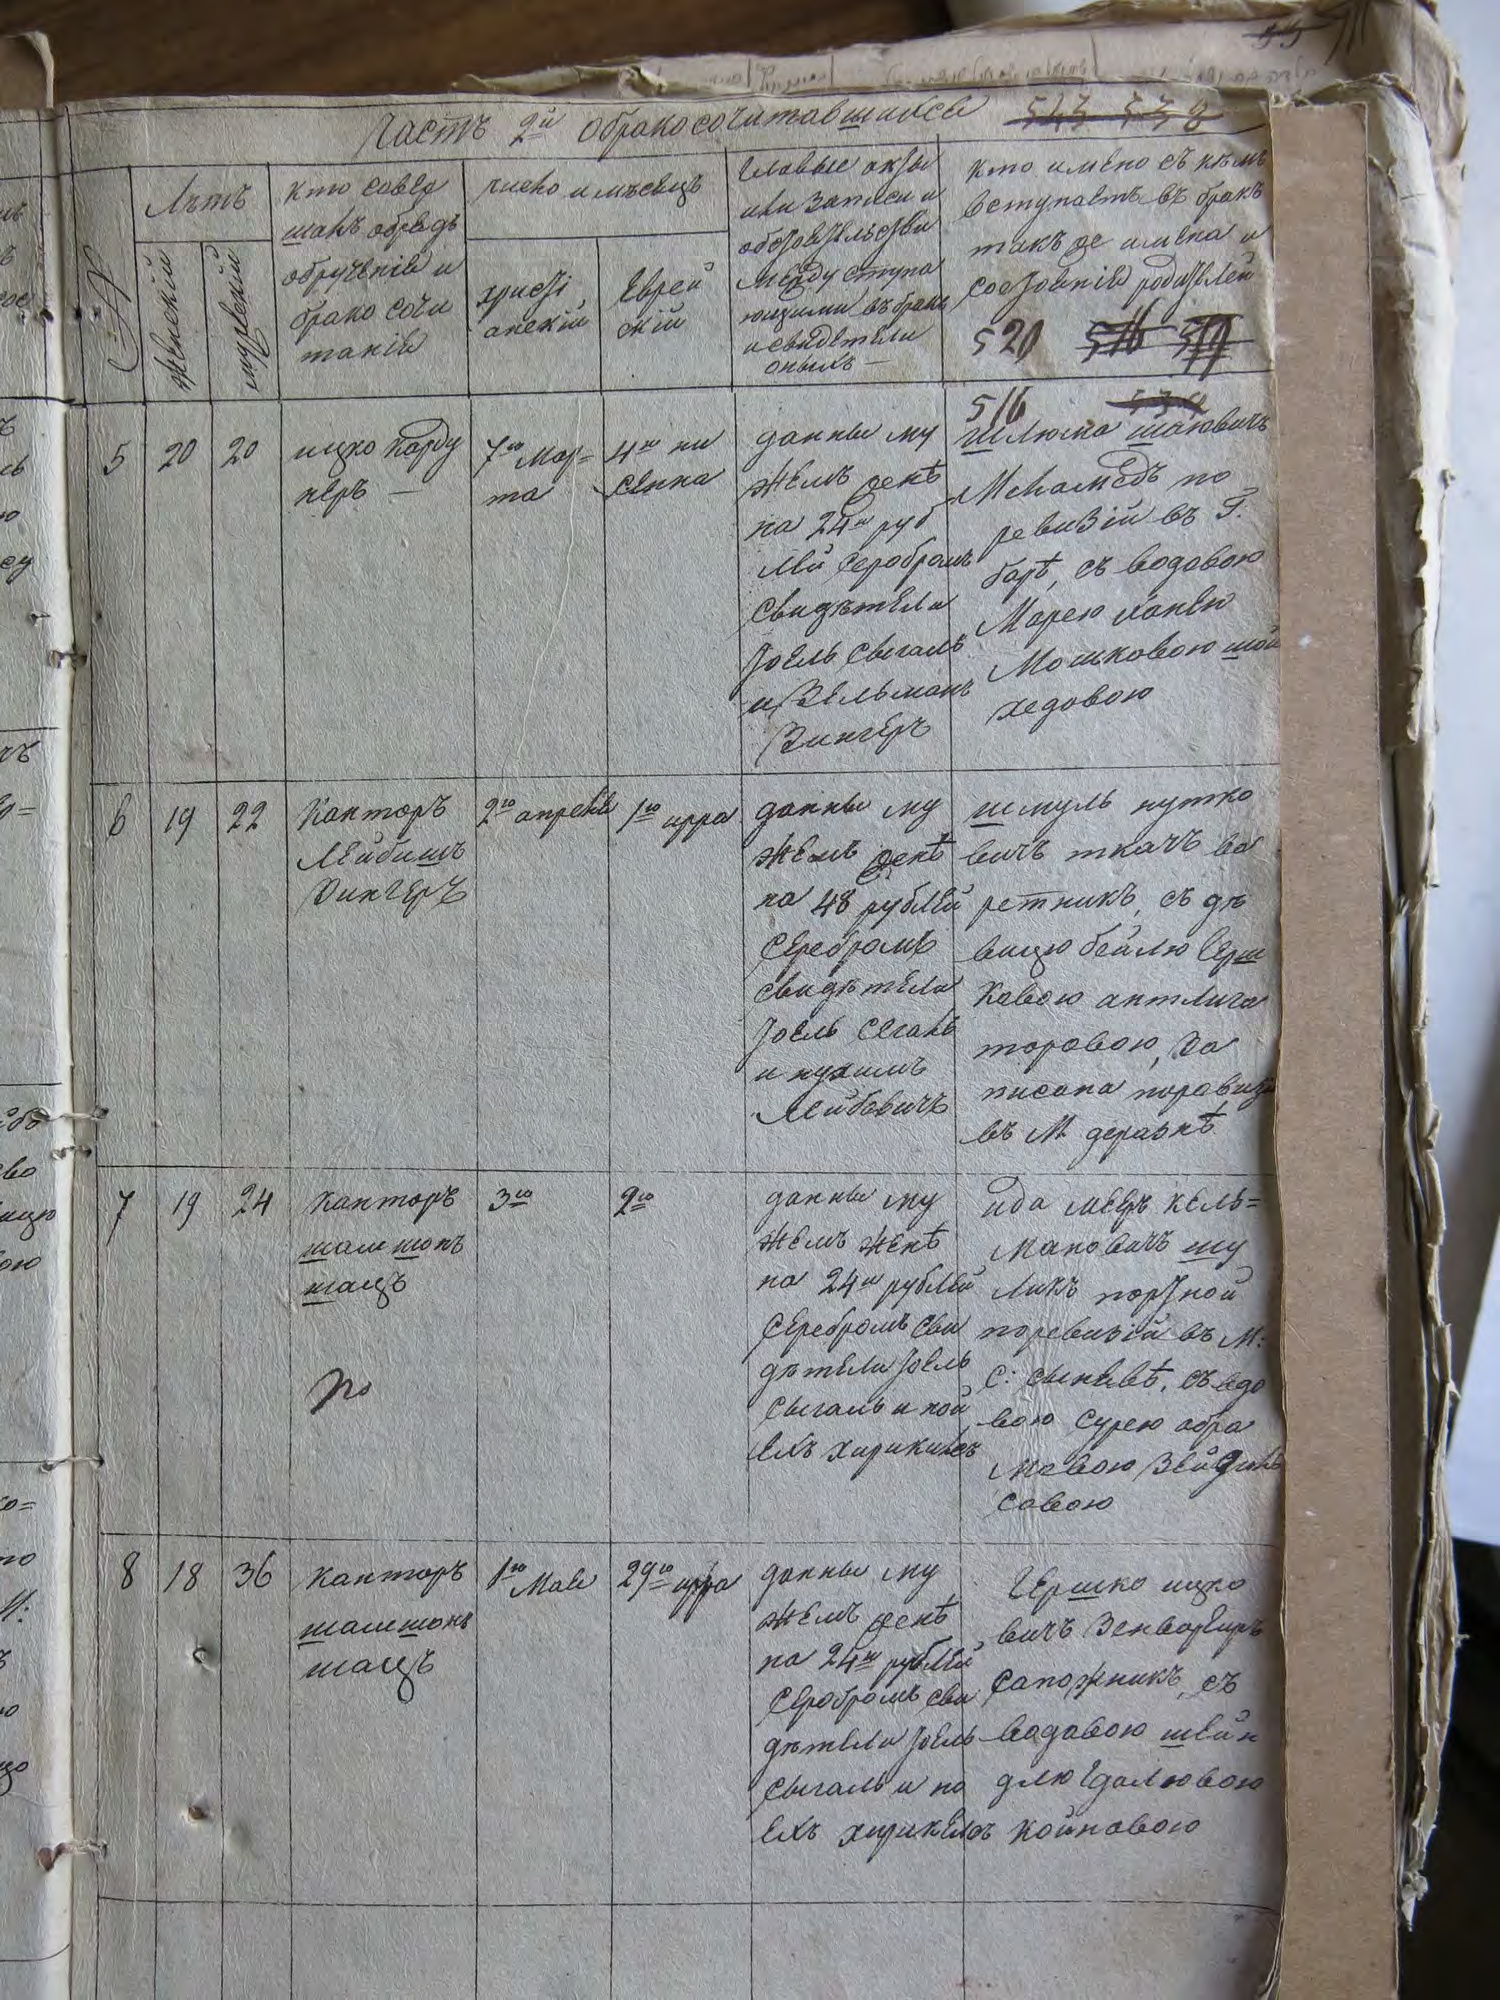 Часть 2й обракосочитавшихся
543 538
№
Лѣтъ
женскій
мужескій
кто совер
шалъ обрядъ
обрученія и
брако сочи
танія
число и мѣсяцъ
христі
анскій
Еврей
скій
Главные акты
или записи и
обстоятельства
между ступа
ющими въ бракъ
и свидетели
оныхъ
кто имено съ кѣмъ
вступаетъ въ бракъ
такъ же имена и
состояніе родителей
520 516 519
516
5
20
20
ицко Карду
неръ —
7го мар=
та
4го ни
сенна
данны му
жемъ женѣ
на 24ри руб
лей серебромъ
свидѣтели
Іоель Сыгаль
и Зельманъ
Зингеръ
Шлюма
Меламедъ по
ревизіи въ Г.
барѣ, съ водовою
Марею
Мошковою
ходовою
6
19
22
Канторъ
Лейбишъ
Зингеръ
2го апреля
1го ирра
данны му
жемъ женѣ
на 48 рублей
серебромъ
свидѣтели
Іоель Сегаль
и нухимъ
Лейбовичъ
шмуль нутко
вичъ ткачъ ва
ретникъ, съ дѣ
вицю бейлю Герш
ковою антлига
торовою, за
писана поревизі
въ М деражнѣ
7
19
24
канторъ
шамшонъ
шацъ
но
3го
2го
данны му
жемъ женѣ
на 24ри рублей
серебромъ сви
дѣтели Іоель
Сыгаль и ной
ехъ хирикилсъ
ида мееръ кель=
мановичъ шу
ликъ портной
поревизіи въ М:
С: сынявѣ, съ вдо
вою Сурею абра
мовою
совою
8
18
36
канторъ
шамшонъ
шацъ
1го Мая
29го ирра
данны му
жемъ женѣ
на 24ри рублей
серебромъ сви
дѣтели Іоель
Сыгаль и но
ехъ хирикелсъ
Гершко ицко
вичъ
Сапожникъ, съ
вадовою шейн
длю Едалювою
койновою